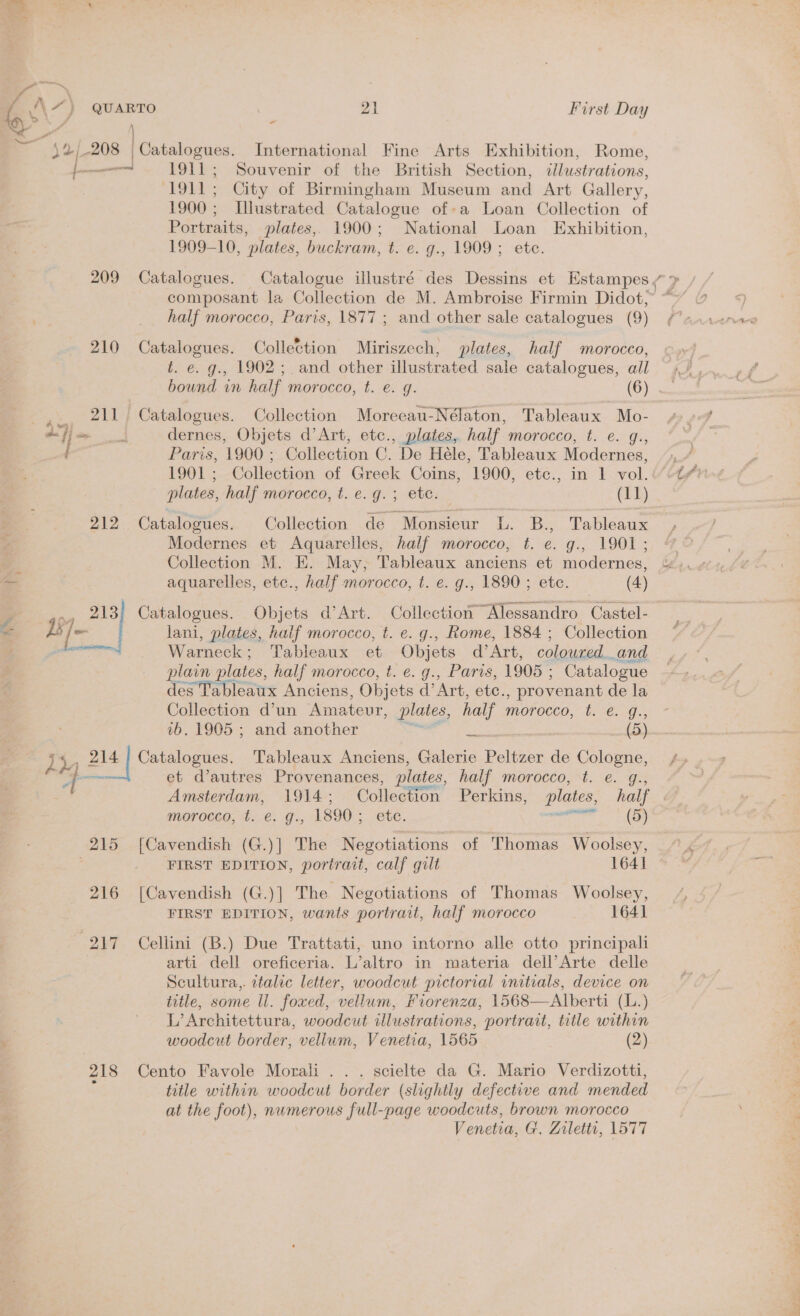 QUARTO 21 First Day
208 Catalogues. International Fine Arts Exhibition, Rome,
1911; Souvenir of the British Section, illustrations,
1911; City of Birmingham Museum and Art Gallery,
1900; Illustrated Catalogue of a Loan Collection of
Portraits, plates, 1900; National Loan Exhibition,
1909–10, plates, buckram, t. e. g., 1909; etc.
209 Catalogues. Catalogue illustré des Dessins et Estampes
composant la Collection de M. Ambroise Firmin Didot,
half morocco, Paris, 1877; and other sale catalogues (9)
210 Catalogues. Collection Miriszech, plates, half morocco,
t. e. g., 1902; and other illustrated sale catalogues, all
bound in half morocco, t. e. g. (6)
211 Catalogues. Collection Moreeau-Nélaton, Tableaux Mo-
dernes, Objets d'Art, etc., plates, half morocco, t. e. g.,
Paris, 1900; Collection C. De Héle, Tableaux Modernes,
1901; Collection of Greek Coins, 1900, etc., in 1 vol.
plates, half morocco, t. e. g.; etc. (11)
212 Catalogues. Collection de Monsieur L. B., Tableaux
Modernes et Aquarelles, half morocco, t. e. g., 1901;
Collection M. E. May, Tableaux anciens et modernes,
aquarelles, etc., half morocco, t. e. g., 1890; etc. (4)
213 Catalogues. Objets d'Art. Collection Alessandro Castel-
lani, plates, half morocco, t. e. g., Rome, 1884; Collection
Warneck; Tableaux et Objets d'Art, coloured and
plain plates, half morocco, t. e. g., Paris, 1905; Catalogue
des Tableaux Anciens, Objets d'Art, etc., provenant de la
Collection d'un Amateur, plates, half morocco, t. e. g.,
ib. 1905; and another (5)
214 Catalogues. Tableaux Anciens, Galerie Peltzer de Cologne,
et d'autres Provenances, plates, half morocco, t. e. g.,
Amsterdam, 1914; Collection Perkins, plates, half
morocco, t. e. g., 1890; etc. (5)
215 [Cavendish (G.)] The Negotiations of Thomas Woolsey,
FIRST EDITION, portrait, calf gilt 1641
216 [Cavendish (G.)] The Negotiations of Thomas Woolsey,
FIRST EDITION, wants portrait, half morocco 1641
217 Cellini (B.) Due Trattati, uno intorno alle otto principali
arti dell oreficeria. L'altro in materia dell'Arte delle
Scultura, italic letter, woodcut pictorial initials, device on
title, some ll. foxed, vellum, Fiorenza, 1568—Alberti (L.)
L'Architettura, woodcut illustrations, portrait, title within
woodcut border, vellum, Venetia, 1565 (2)
218 Cento Favole Morali . . . scielte da G. Mario Verdizotti,
title within woodcut border (slightly defective and mended
at the foot), numerous full-page woodcuts, brown morocco
Venetia, G. Ziletti, 1577